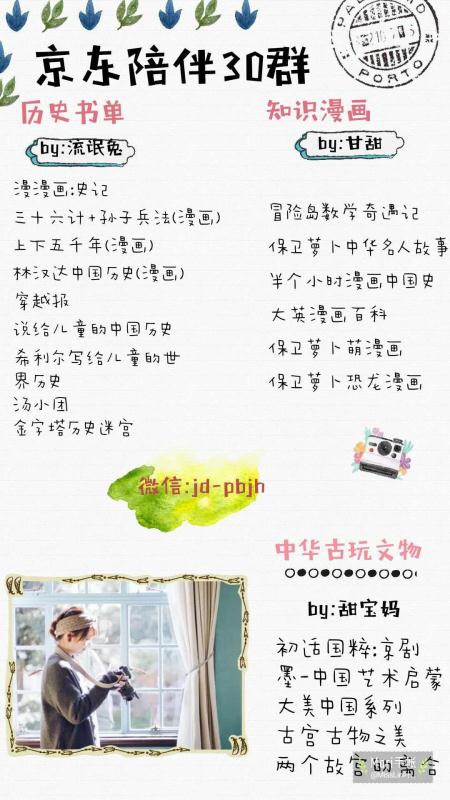 京东陪伴30群
历史书单
by:流氓兔
漫漫画:史记
三十六计+孙子兵法(漫画)
上下五千年(漫画)
林汉达中国历史(漫画)
穿越报
说给儿童的中国历史
希利尔写给儿童的世
界历史
汤小团
金字塔历史迷宫
知识漫画
by:甘甜
冒险岛数学奇遇记
保卫萝卜中华名人故事
半个小时漫画中国史
大英漫画百科
保卫萝卜萌漫画
保卫萝卜恐龙漫画
微信:jd-pbjh
中华古玩文物
by:甜宝妈
初话国粹:京剧
墨-中国艺术启蒙
大美中国系列
古宫古物之美
两个故宫的离合
PORTO